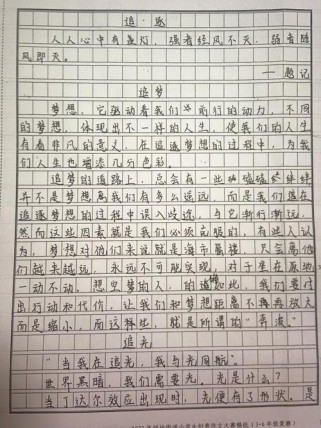 追·逐
人人心中有盏灯，强者经风不灭，弱者随
风即灭。
——题记
追梦
梦想，它驱动着我们前行的动力，不同
的梦想，体现出不一样的人生，使我们的人生
有着非凡的意义，在追逐梦想的过程中，为我
们人生也增添几分色彩。
追梦的道路上，总会有一些磕磕绊绊
并不是梦想离我们有多么遥远，而是我们在
追逐梦想的过程中误入歧途，与它渐行渐远，
然而这些因素就是我们必须克服的，有些人认
为，梦想对他们来说就是海市蜃楼，只会离他
们越来越远，永远不可能实现，对于坐在原地
一动不动，想安梦的人，的确如此，我们要付
出行动和代价，让我们和梦想距离不再放大
而是缩小，而这样些，就是所谓的“奔波”。
追光
“当我在追光，我与光同航”。
世界黑暗，我们需要光。光是什么？
当丁达尔效应出现时，光便有了形状。是